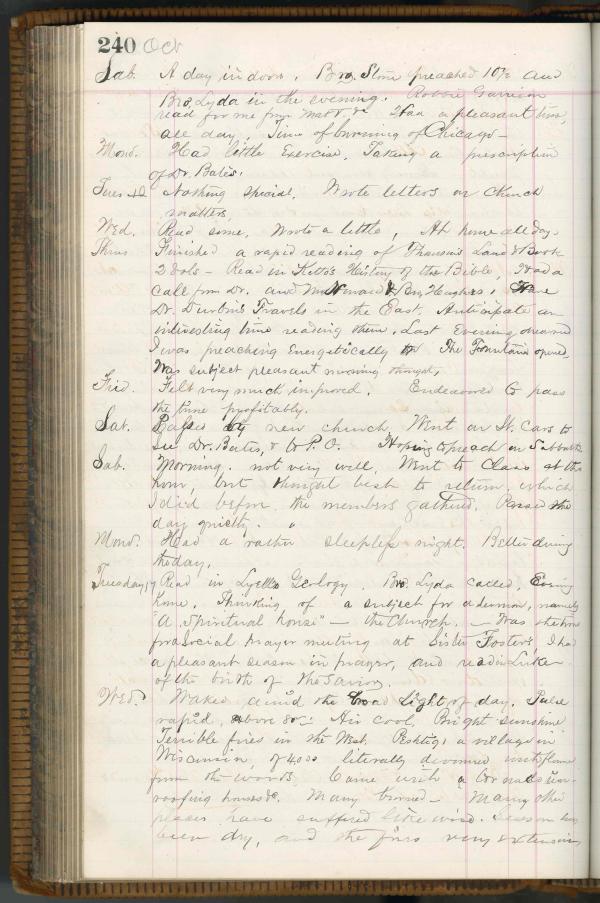 240 Oct
Sab. A day in doors. Bro. Stone preached 10½ and
Bro. Lyda in the evening. Robbie Garrison
read for me from Matt. &c Had a pleasant time,
all day. Time of burning of Chicago—
Mond. Had little Exercise. Taking a prescription
of Dr. Bates.
Tues Nothing special. Wrote letters on Church
matters.
Wed. Read some. Wrote a little, At home all day.
Thurs Finished a rapid reading of Thomson's Land & Book
2 Vols — Read in Kitto's History of the Bible, Had a
call from Dr. and Mrs & Bro Hughes,
Dr. Durbin's Travels in the East. Anticipate an
interesting time reading them. Last Evening dreamed
I was preaching Energetically The Fountain opened
Was subject pleasant morning
Frid. Felt very much improved. Endeavored to pass
the time profitably.
Sat. by new church, Went on St. Cars to
see Dr. Bates, & to P.O. Hoping to preach on Sabbath
Sab. Morning. not very well. Went to Class at the
hour, but thought best to return, which
I did before the members gathered. Passed the
day quietly.
Mond. Had a rather sleepless night. Better during
the day.
Tuesday 17 Read in Lyell's Geology. Bro. Lyda called, Evening
home. Thinking of a subject for a sermon, namely
"A spiritual house" — the Church. — Was
for a social prayer meeting at Sister Foster's, I had
a pleasant season in prayer, and read in Luke
of the birth of the Savior.
Wed. Waked amid the broad light of day. Pulse
rapid, above 80: Air cool, Bright sunshine
Terrible fires in the West. Peshtigo, a village in
Wisconsin, of 4000 literally devoured with flame
from the woods. Came with a tornado
roofing houses &c. Many burned — Many other
places have suffered likewise. Season has
been dry, and the fires very extensive